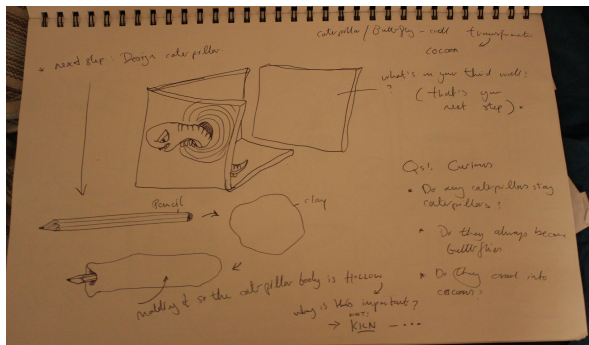 caterpillar / Butterfly - wall transformation
cocoon
* next step: Design caterpillar
what's in your third wall?
?
(that's your
next step).
Qs!. Curious
Pencil
clay
* Do any caterpillars stay
caterpillars?
* Do they always become
butterflies
* Do they crawl into
cocoons?
molding it so the caterpillar body is HOLLOW
why is this important?
→ KILN - ...